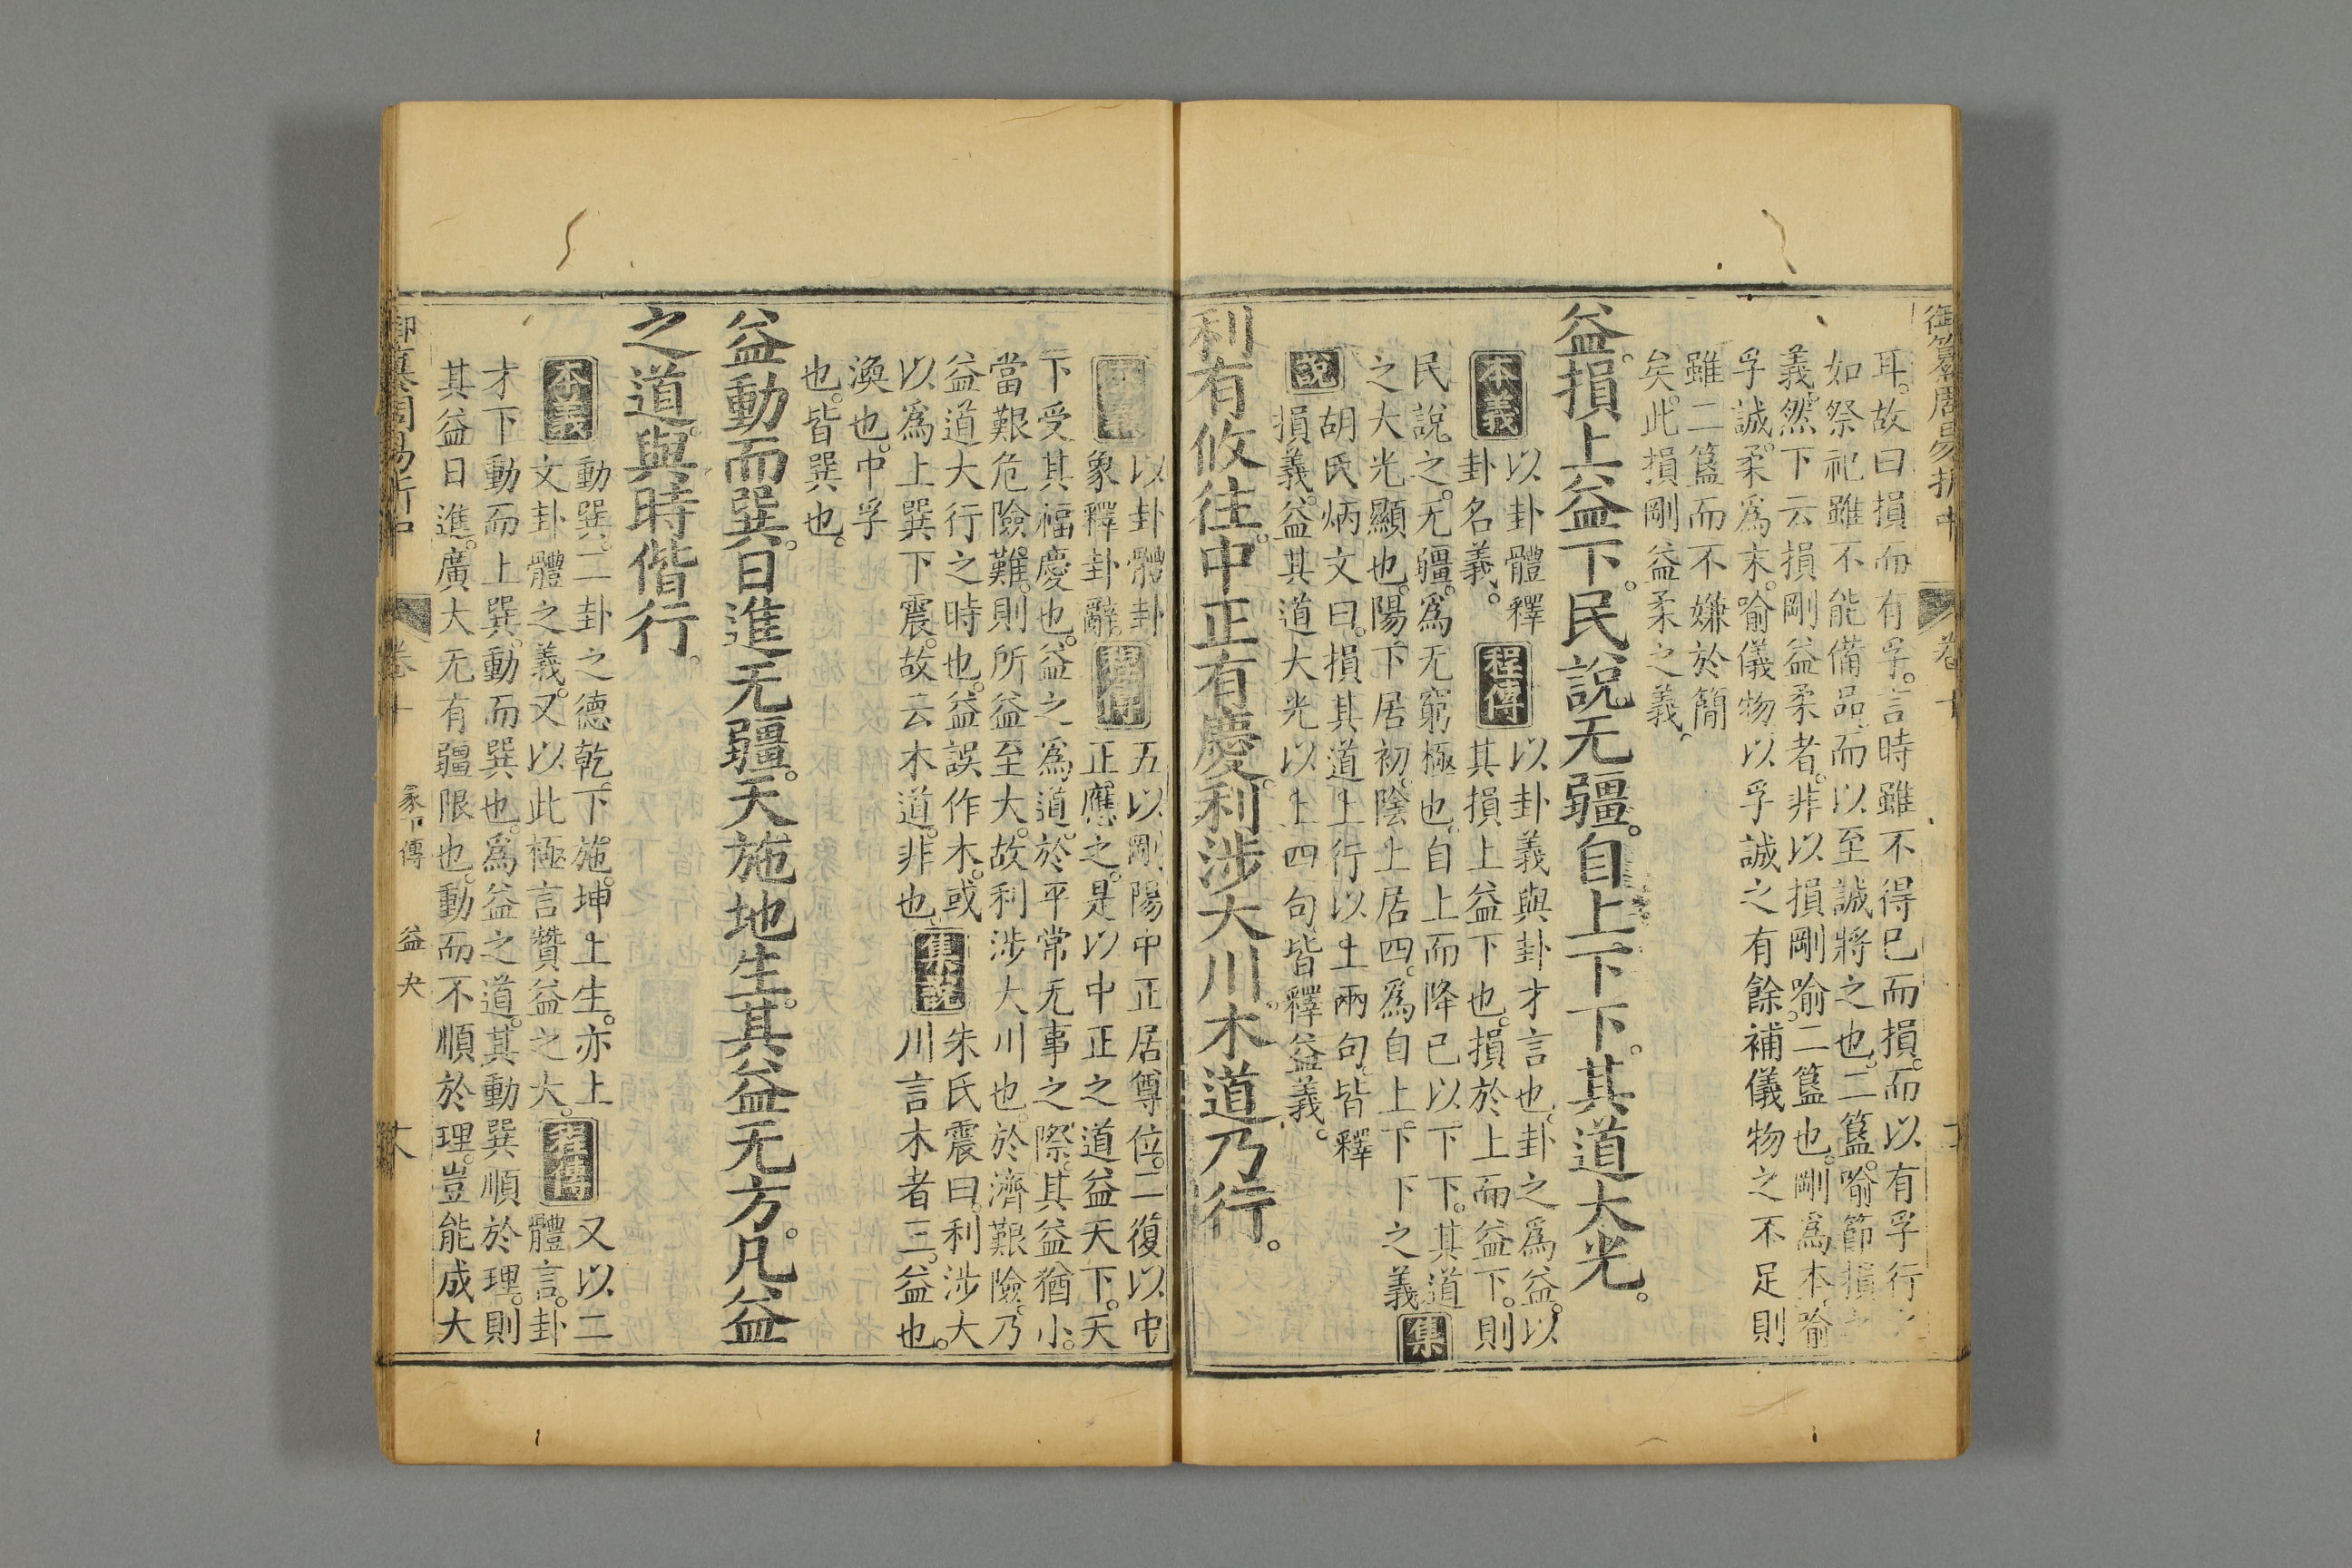 御纂周易折中
卷十
耳。故曰損而有孚。言時雖不得已而損。而以有孚行
如祭祀雖不能備品。而以至誠將之也。二簋。喻節損
義。然下云損剛益柔者。非以損剛喻二簋也。剛爲本。喻
孚誠。柔爲末。喻儀物。以孚誠之有餘補儀物之不足。則
雖二簋而不嫌於簡
矣。此損剛益柔之義。
益。損上益下。民說无疆。自上下下。其道大光。
本義
以卦體釋
卦名義。
程傳
以卦義與卦才言也。卦之爲益。以
其損上益下也。損於上而益下。則
民說之。无疆。爲无窮極也。自上而降已以下下。其道
之大光顯也。陽下居初。陰上居四。爲自上下下之義
集
說
胡氏炳文曰。損其道上行以上兩句。皆釋
損義。益其道大光以上四句。皆釋益義。
利有攸往。中正有慶。利涉大川。木道乃行。
本義
以卦體卦
象釋卦辭。
程傳
五以剛陽中正居尊位。二復以中
正應之。是以中正之道益天下。天
下受其福慶也。益之爲道。於平常无事之際。其益猶小。
當艱危險難。則所益至大。故利涉大川也。於濟艱險。乃
益道大行之時也。益誤作木。或
以爲上巽下震。故云木道。非也
集說
朱氏震曰。利涉大
川言木者三。益也。
渙也。中孚
也。皆巽也。
益動而巽。日進无疆。天施地生。其益无方。凡益
之道。與時偕行。
本義
動巽。二卦之德。乾。下施。坤上生。亦上
文卦體之義。又以此極言贊益之大。
程傳
又以二
體言。卦
才下動而上巽。動而巽也。爲益之道。其動巽順於理。則
其益日進。廣大无有疆限也。動而不順於理。豈能成大
御纂周易折中
卷十
彖下傳
益
夬